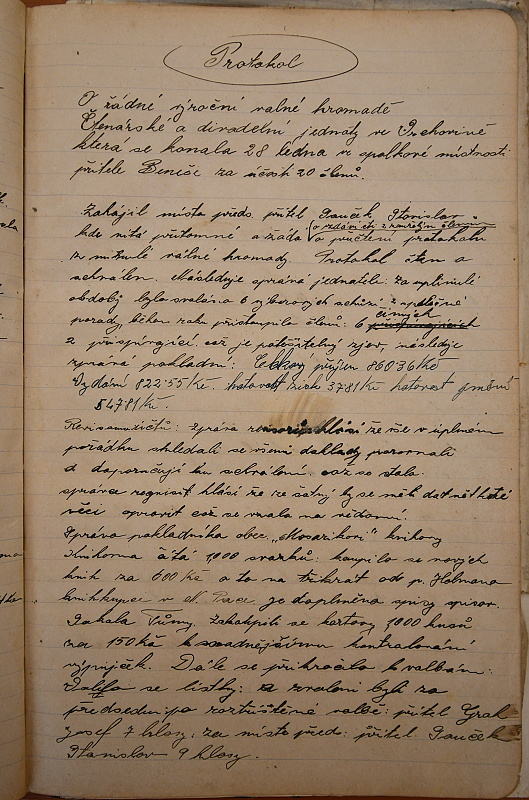 Protokol
O řádné výroční valné hromadě
Čtenářské a divadelní jednoty ve
která se konala 28 ledna ve spolkové místnosti
přítele Beniše za účasti 20 členů.
Zahájil místo předs. přítel Stanislav
kde vítá přítomné a žádá o přečtení protokolu
o vzdání cti zemřelým členům
z minulé valné hromady. Protokol čten a
schválen. Následuje zpráva jednatele: za uplinulé
období bylo svoláno 6 výborových schůzí 2 společné
porady, během roku přistoupilo členů: 6 činných
2 přispívající což je potěšitelný zjev, následuje
zpráva pokladní: Celkový příjem 86036 Kč
Vydání 82255 Kč. hotovost 3781 Kč hotovost jmění
54781 Kč.
zpráva hlásí že vše v úplném
pořádku shledali se všemi doklady porovnali
a doporučují ku schválení což se stalo.
správce hlásí že ze šatny by se měli dát
věci spravit což se vzalo na vědomí.
Zpráva pokladníka obec. knihovny
Knihovna čítá 1,000 svazků: koupilo se nových
knih za 600 Kč a to na třikrát od p. Helmana
knihkupce v N. Pace je doplněna spisy spisov.
Jakala Tůmy. Zakoupili se kartony 1000 kusů
za 150 Kč k snadnějšímu kontrolování
výpujček. Dále se přikročilo k volbám:
se lístky: a zvoleni byli za
předsedu: po roztříštěné volbě: přítel
Josef 7 hlasy: za místo před: přítel
Stanislav 9 hlasy.